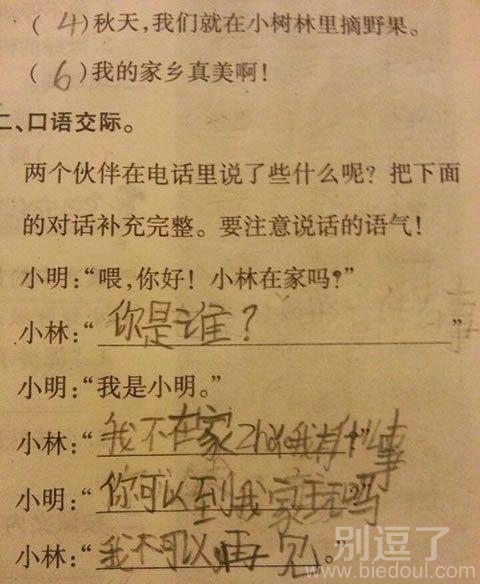 (4)秋天,我们就在小树林里摘野果。
(6)我的家乡真美啊!
二、口语交际。
两个伙伴在电话里说了些什么呢?把下面
的对话补充完整。要注意说话的语气!
小明:“喂,你好!小林在家吗?”
小林:“你是谁?”
小明:“我是小明。”
小林:“我不在家zhǎo我有什么事”
小明:“你可以到我家玩吗
小林:“我不可以再见。”
别逗了
www.biedoul.com